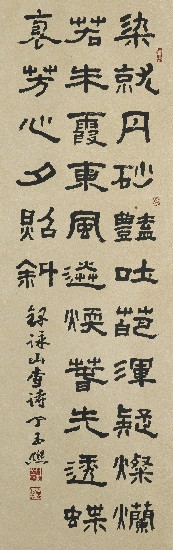 染就丹砂豔吐葩渾疑燦爛
若朱霞東風送煖先透蝶
芳心夕照斜
詠山查诗丁玉